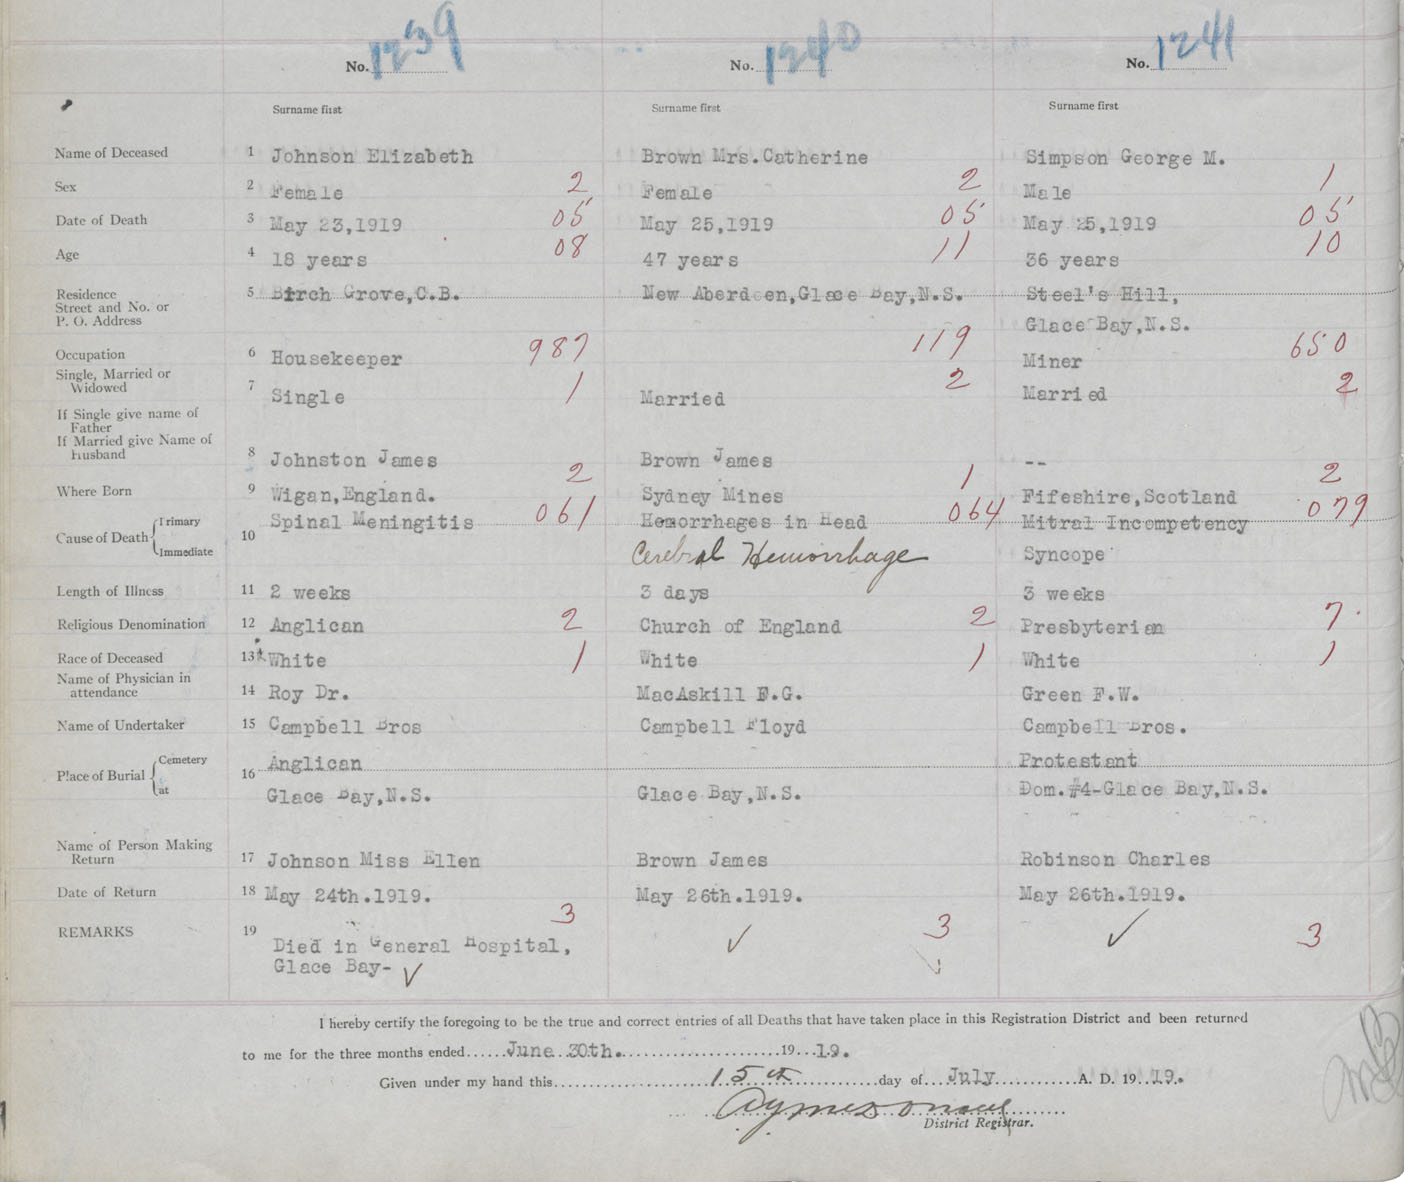 No. 1239 No. 1240 No. 1241
Surname first Surname first Surname first
Name of Deceased 1 Johnson Elizabeth Brown Mrs.Catherine Simpson George M.
Sex 2 Female 2 Female 2 Male 1
Date of Death 3 May 23,1919 05 May 25,1919 05 May 25,1919 05
Age 4 18 years 08 47 years 11 36 years 10
Residence 5 Birch Grove,C.B. New Aberdeen,Glace Bay,N.S. Steel's Hill,
Street and No. or
P. O. Address Glace Bay,N.S.
Occupation 6 Housekeeper 987 119 Miner 650
Single, Married or
Widowed 7 Single 1 Married 2 Married 2
If Single give name of
Father
If Married give Name of
Husband 8 Johnston James Brown James --
Where Born 9 Wigan,England. 2 Sydney Mines 1 Fifeshire,Scotland 2
Primary Spinal Meningitis 061 Hemorrhages in Head 064 Mitral Incompetency 079
Cause of Death 10
Immediate Cerebral Hemorrhage Syncope
Length of Illness 11 2 weeks 3 days 3 weeks
Religious Denomination 12 Anglican 2 Church of England 2 Presbyterian 7
Race of Deceased 13 White 1 White 1 White 1
Name of Physician in
attendance 14 Roy Dr. MacAskill F.G. Green F.W.
Name of Undertaker 15 Campbell Bros Campbell Floyd Campbell Bros.
Cemetery Anglican Protestant
Place of Burial 16
at Glace Bay,N.S. Glace Bay,N.S. Dom.#4-Glace Bay,N.S.
Name of Person Making
Return 17 Johnson Miss Ellen Brown James Robinson Charles
Date of Return 18 May 24th.1919. May 26th.1919. May 26th.1919.
REMARKS 19 3 3 3
Died in General Hospital,
Glace Bay-
I hereby certify the foregoing to be the true and correct entries of all Deaths that have taken place in this Registration District and been returned
to me for the three months ended June 30th. 19 19.
Given under my hand this 15th day of July A. D. 19 19.
District Registrar.